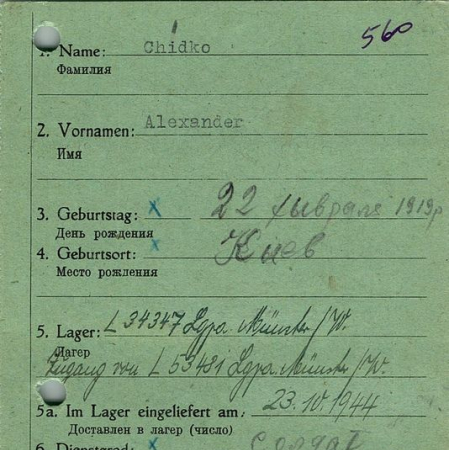 560
1. Name: Chidko
Фамилия
2. Vornamen: Alexander
Имя
3. Geburtstag: x 22 февраля 1919 г
День рождения
4. Geburtsort: x Киев
Место рождения
5. Lager: L 34347 Lgpa. Münster/W.
Лагер
Zugang von L 53481 Lgpa. Münster/W.
5a. Im Lager eingeliefert am: 23.IV.1944
Доставлен в лагер (число)
6. Dienstgrad: x Солдат